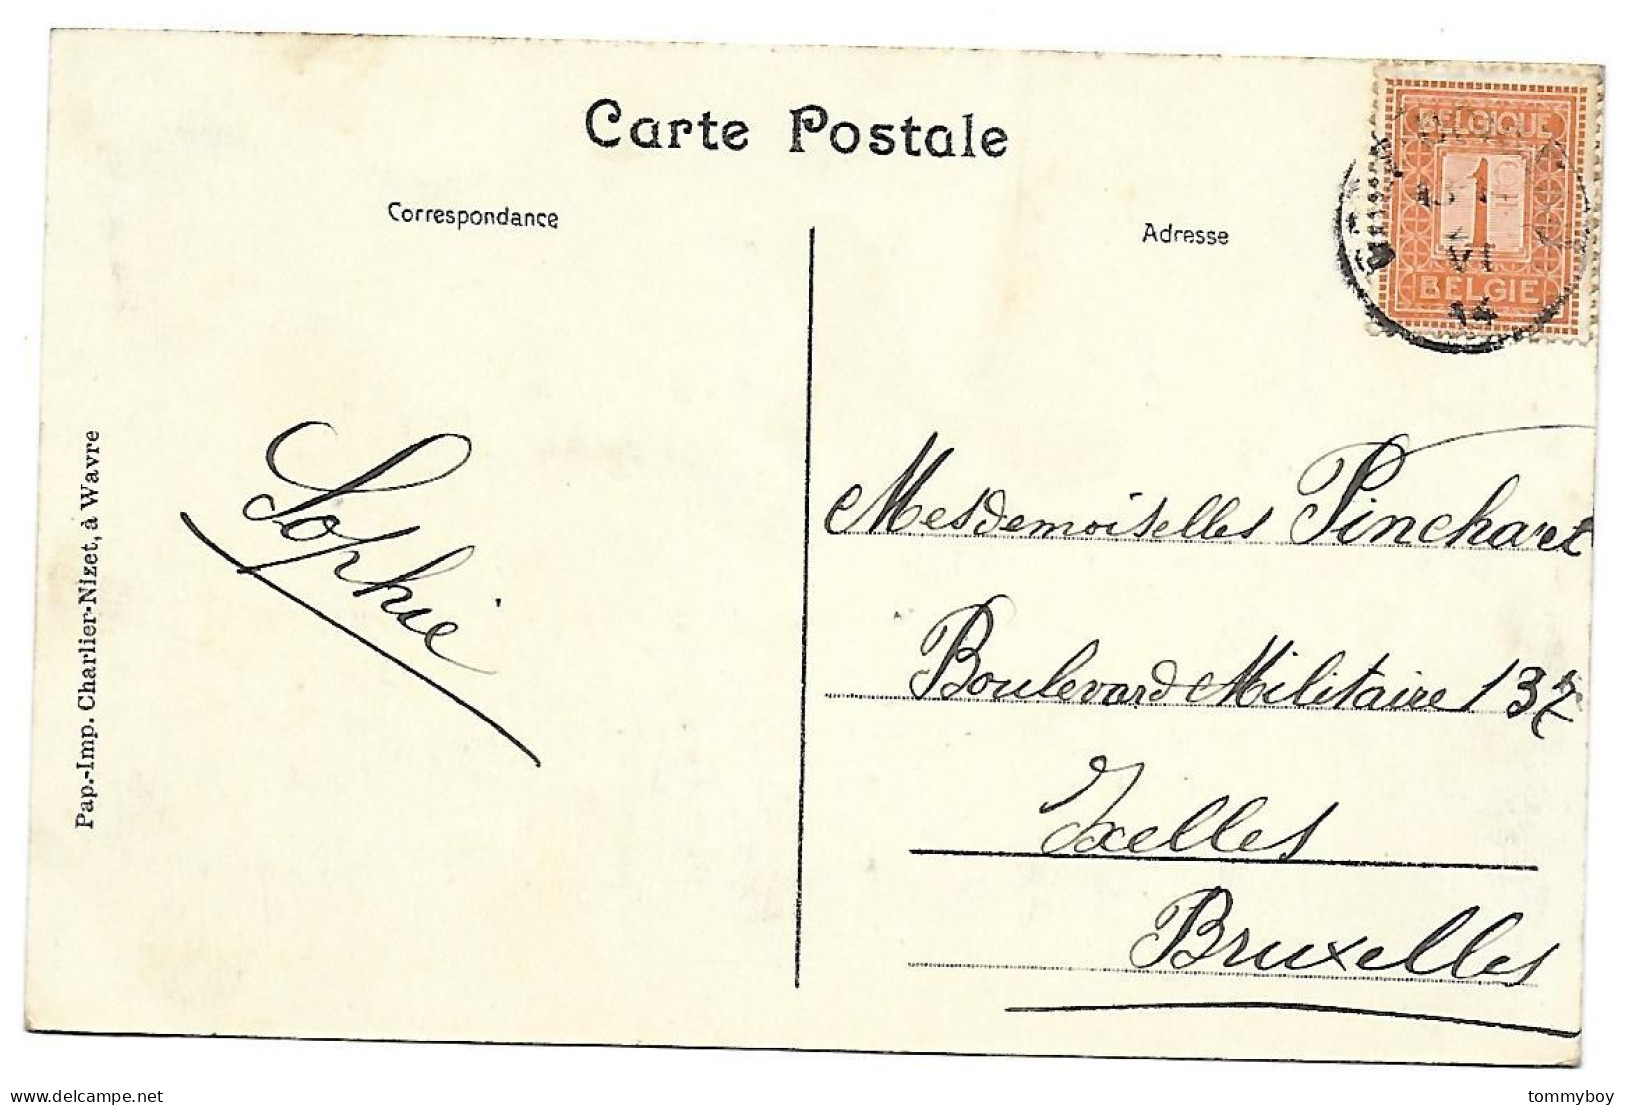 Carte Postale
Correspondance
Adresse
BELGIQUE
1
BELGIE
VI
14
Pap.-Imp. Charlier-Nizet, à Wavre
Sophie
Mesdemoiselles Pinchart
Boulevard Militaire 137
Ixelles
Bruxelles
delcampe.net
tommyboy